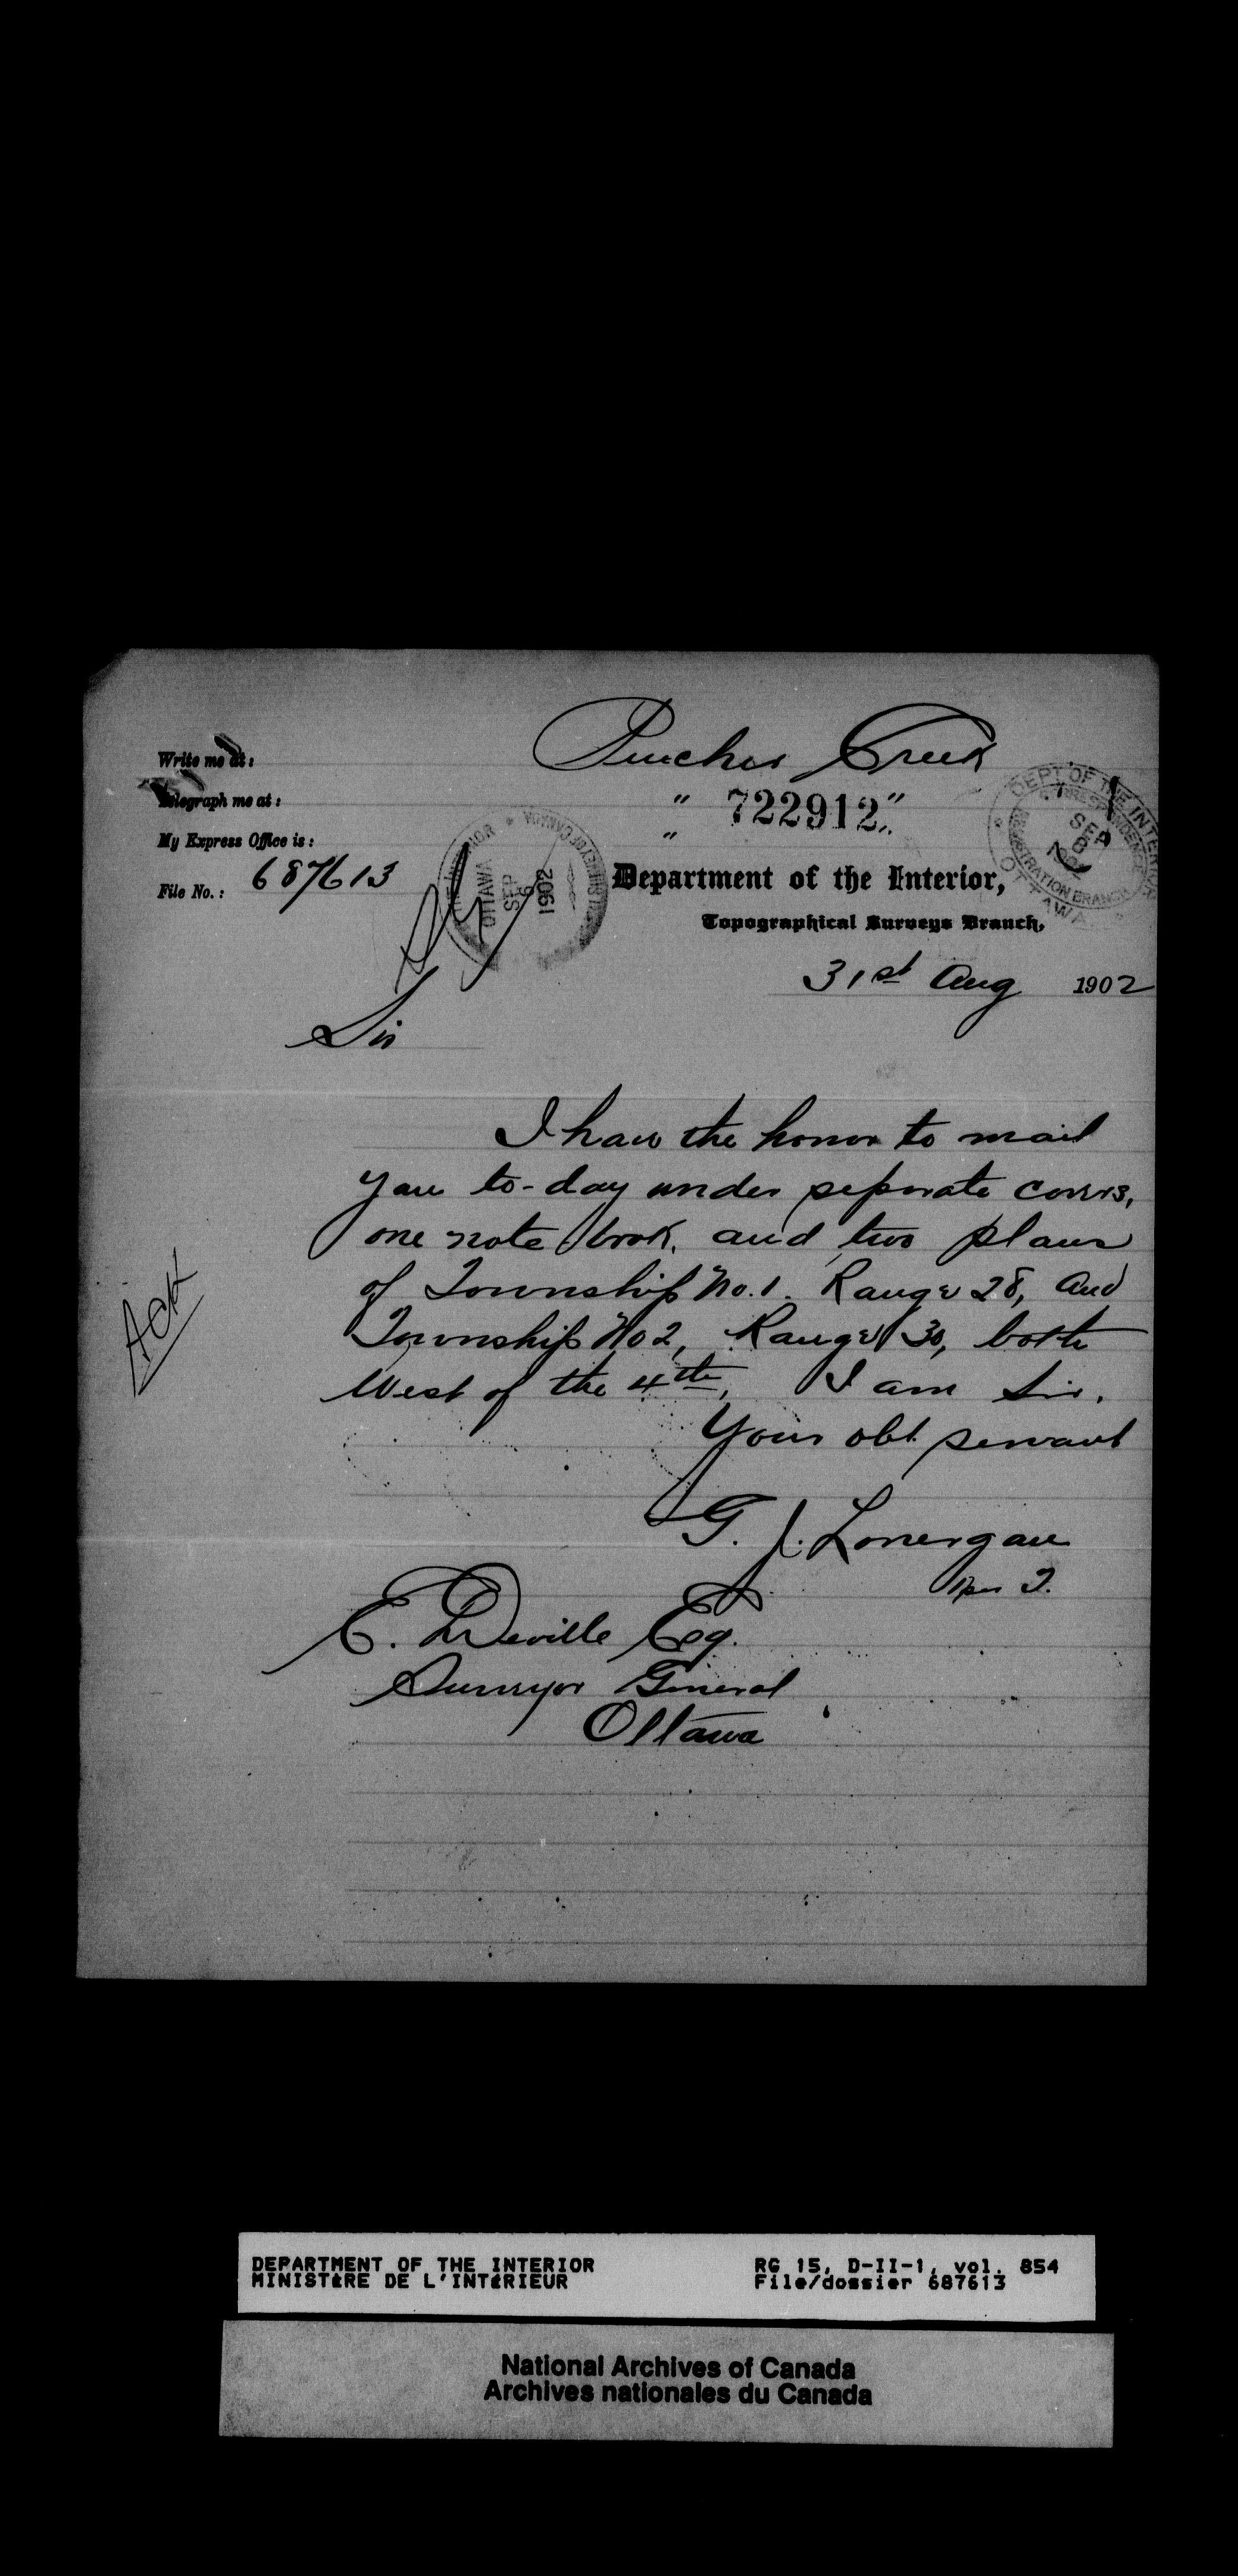 Write me at:
Pincher Creek
Telegraph me at:
" 722912"
My Express Office is:
"
File No.: 687613
OTTAWA
SEP
6
1902
DEPT OF THE INTERIOR
SEP
OTTAWA
Department of the Interior,
Topographical Surveys Branch,
31st Aug 1902
Sir
I have the honor to mail
you to-day under separate covers,
one note book, and two plans
of Township No. 1. Range 28, and
Township No 2, Range 30, both
West of the 4th, I am Sir.
Your obt. servant
G. J. Lonergan
per J.
Ack
E. Deville Esq.
Surveyor General
Ottawa
DEPARTMENT OF THE INTERIOR
MINISTÈRE DE L'INTÉRIEUR
RG 15, D-II-1, vol. 854
File/dossier 687613
National Archives of Canada
Archives nationales du Canada